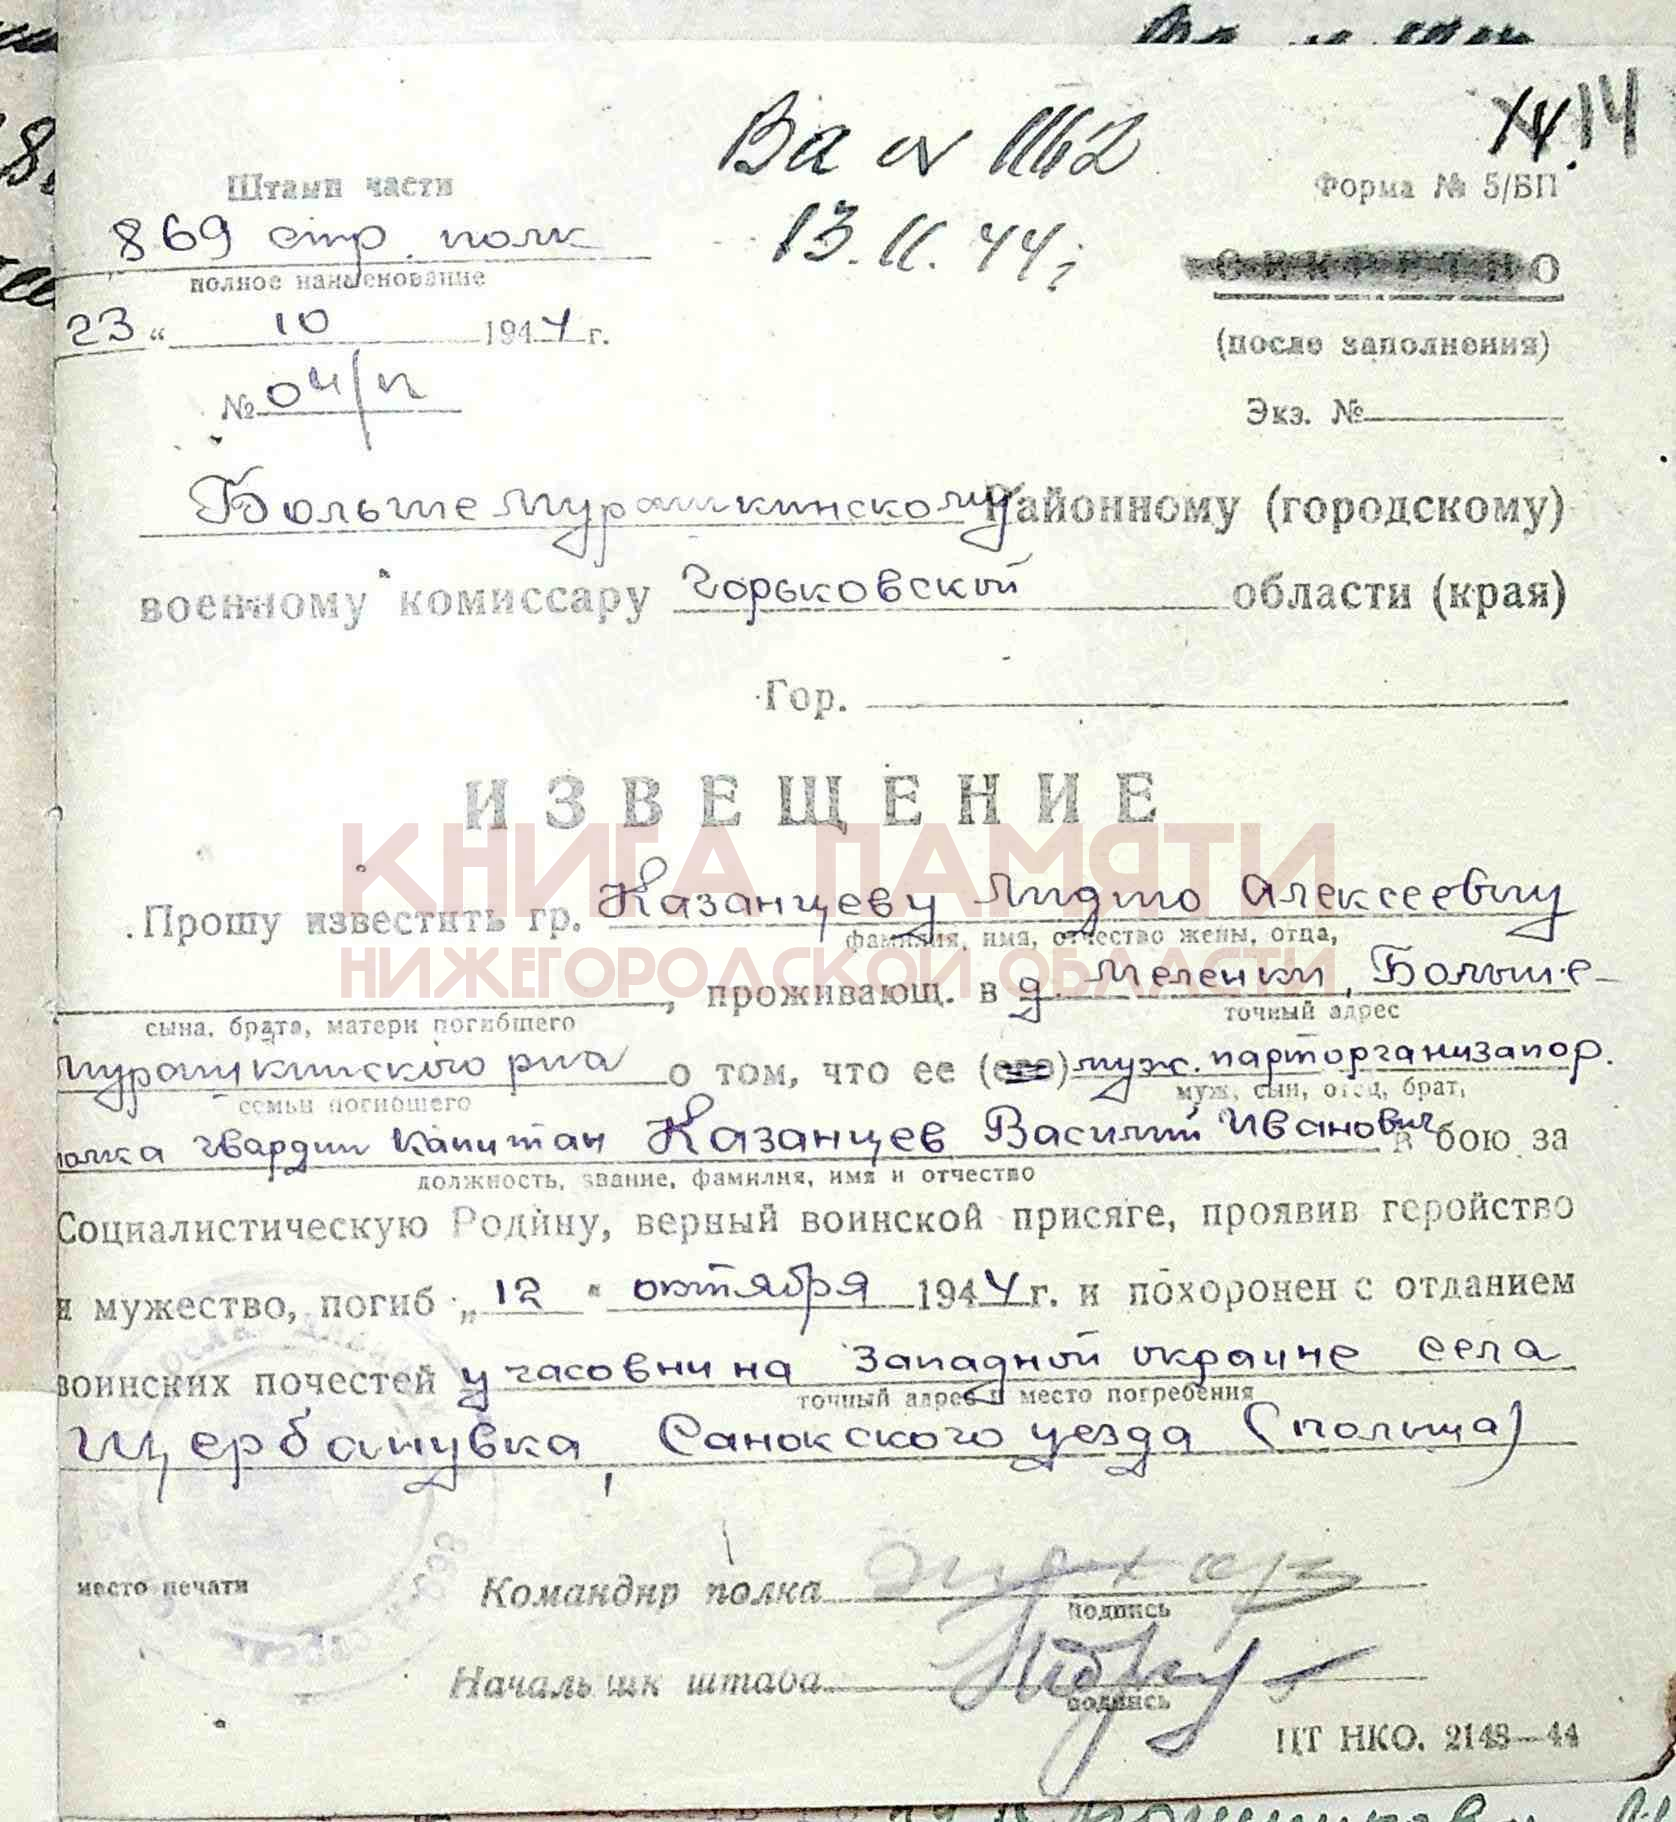 Ва № 1162
13.11.44г
14
Форма № 5/БП
Штамп части
869 стр. полк
полное наименование
СЕКРЕТНО
(после заполнения)
23 “ 10 1944 г.
№ 04/п
Экз. №
Большемурашкинскому Районному (городскому)
военному комиссару Горьковской области (края)
Гор.
ИЗВЕЩЕНИЕ
КНИГА ПАМЯТИ
НИЖЕГОРОДСКОЙ ОБЛАСТИ
Прошу известить гр. Казанцеву Лидию Алексеевну
фамилия, имя, отчество жены, отца,
, проживающ. в д. Меленки, Больше-
сына, брата, матери погибшего
точный адрес
мурашкинского р-на о том, что ее (его) муж. парторганизатор.
семьи погибшего
муж, сын, отец, брат,
полка гвардии капитан Казанцев Василий Иванович в бою за
должность, звание, фамилия, имя и отчество
Социалистическую Родину, верный воинской присяге, проявив геройство
и мужество, погиб „ 12 “ октября 1944 г. и похоронен с отданием
воинских почестей у часовни на западной окраине села
точный адрес и место погребения
Щербанувка, Санокского уезда (Польша)
место печати
Командир полка
подпись
Начальник штаба
подпись
ЦТ НКО. 2148—44